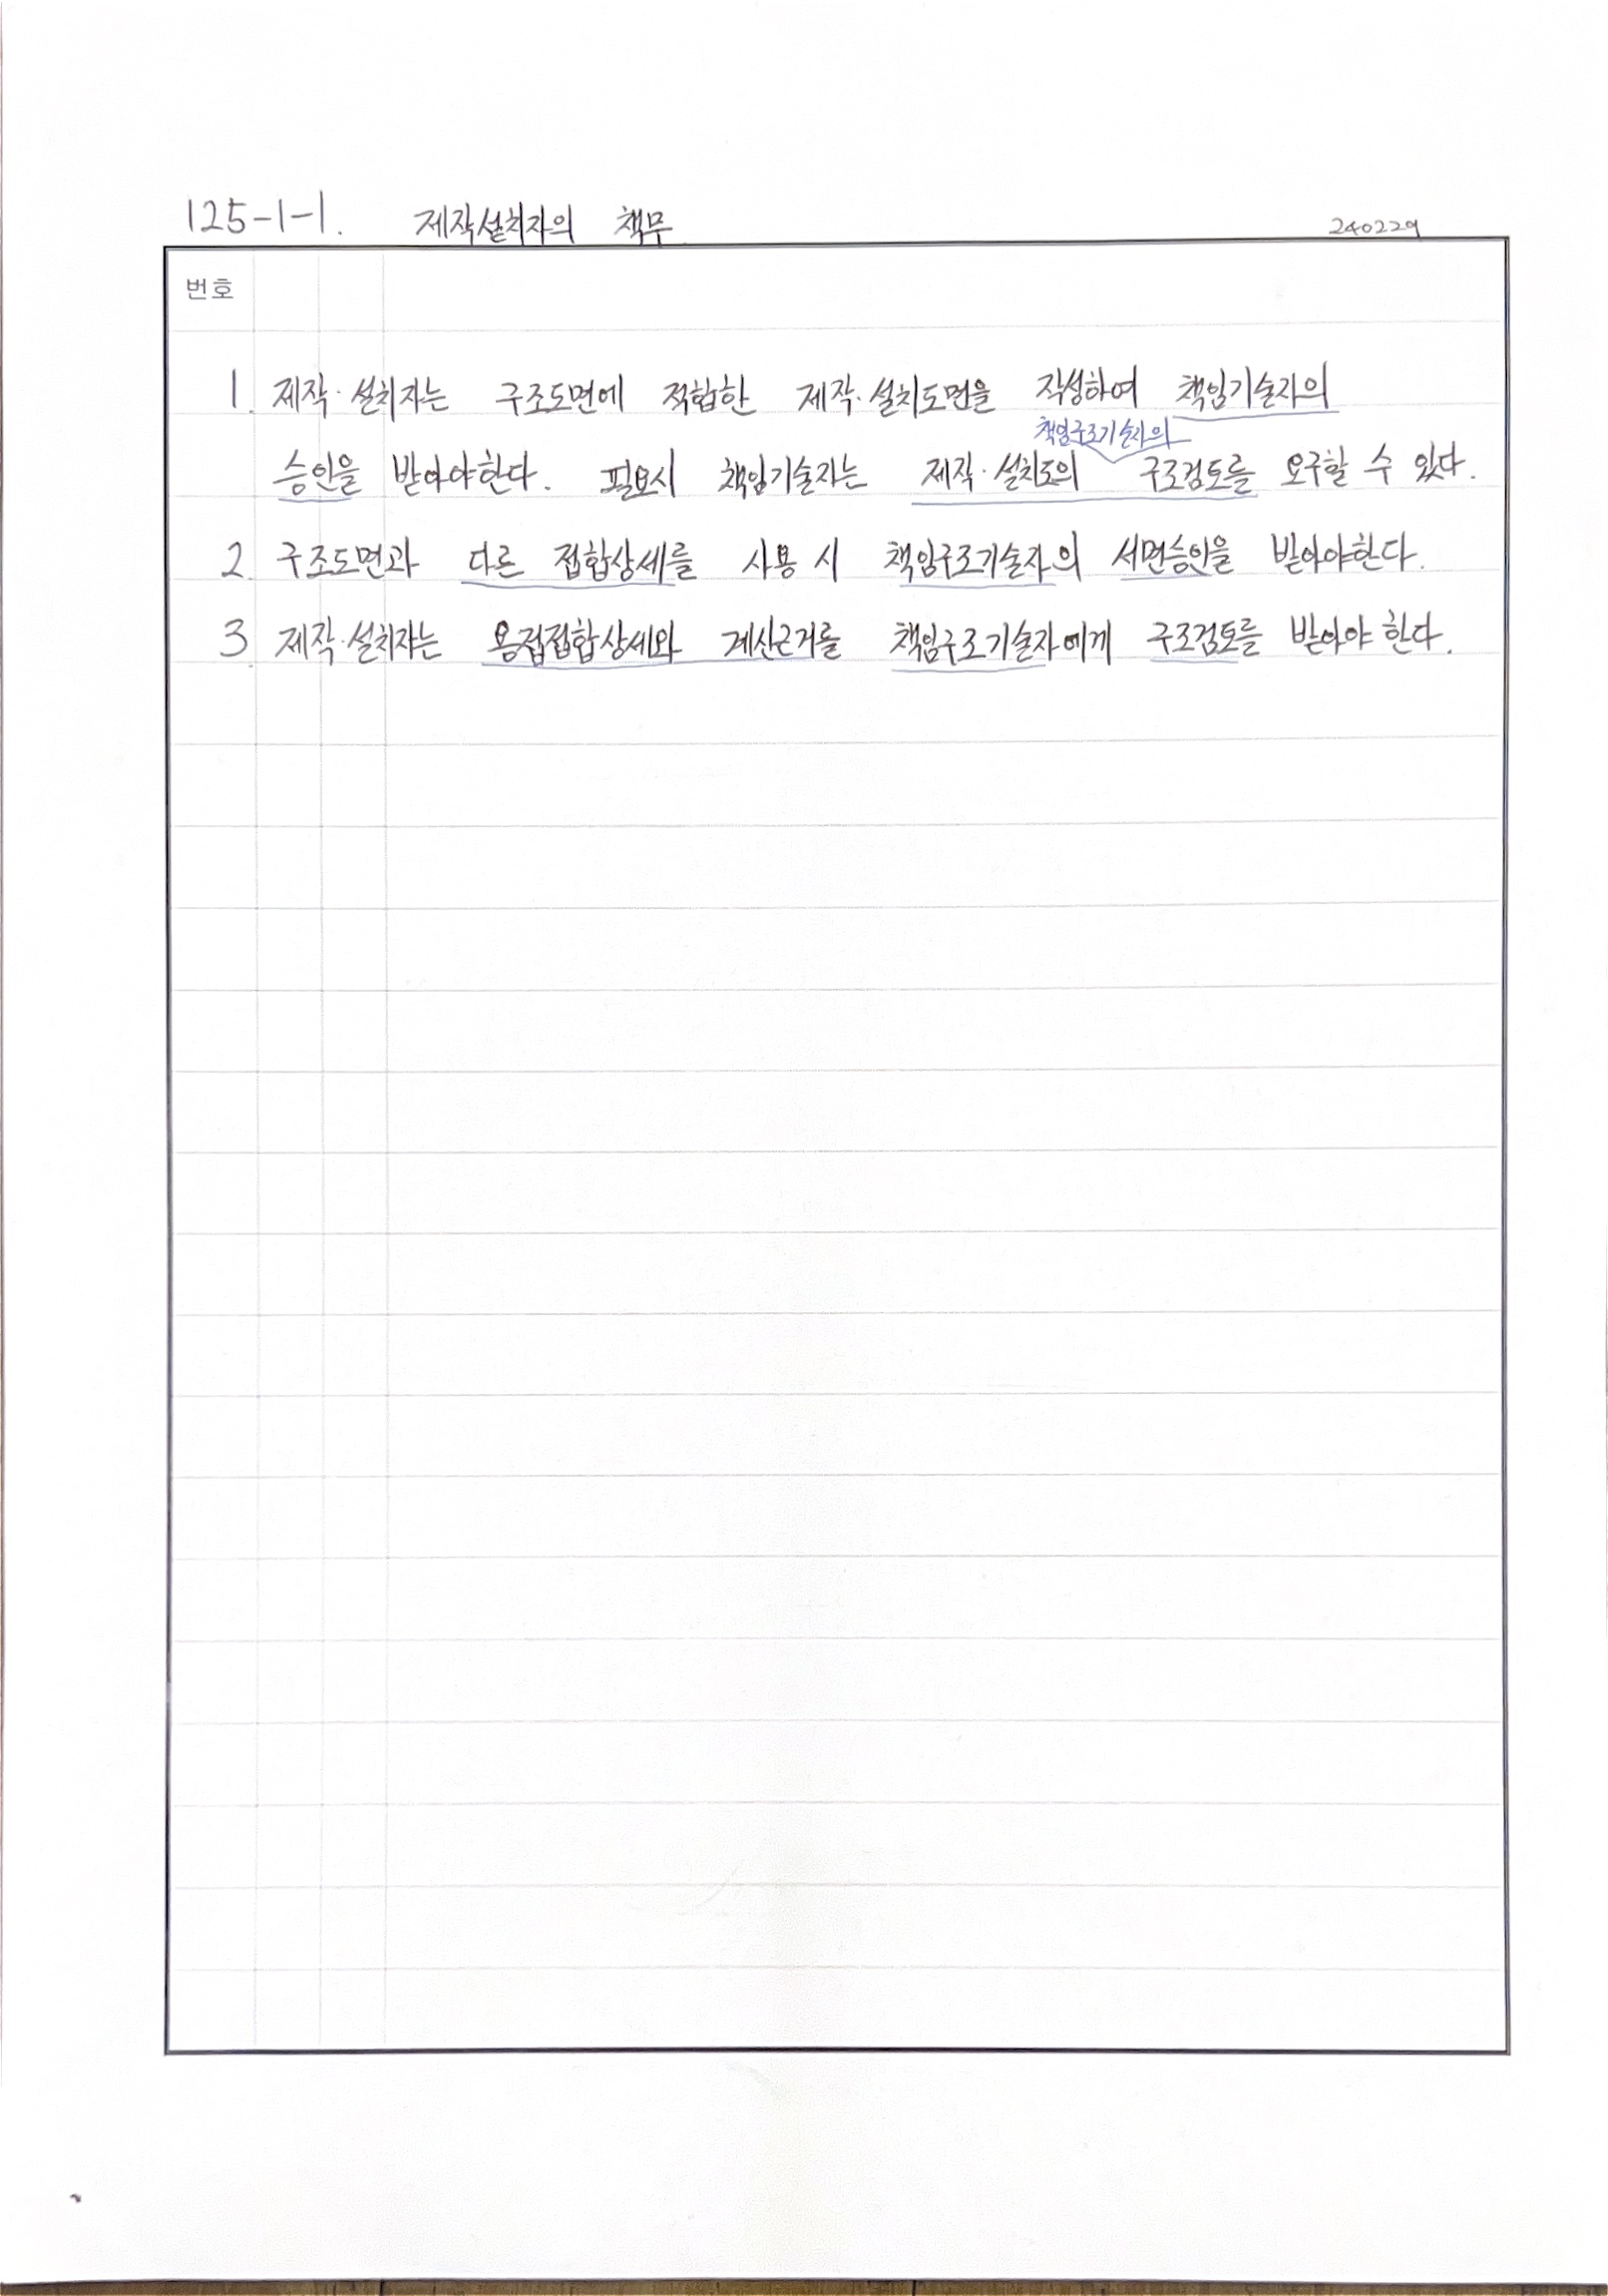 125-1-1. 제작설치자의 책무
240229
번호
1. 제작·설치자는 구조도면에 적합한 제작·설치도면을 작성하여 책임기술자의
책임구조기술자의
승인을 받아야한다. 필요시 책임기술자는 제작·설치도의 구조검토를 요구할 수 있다.
2. 구조도면과 다른 접합상세를 사용 시 책임구조기술자의 서면승인을 받아야한다.
3. 제작·설치자는 용접접합상세와 계산근거를 책임구조기술자에게 구조검토를 받아야 한다.